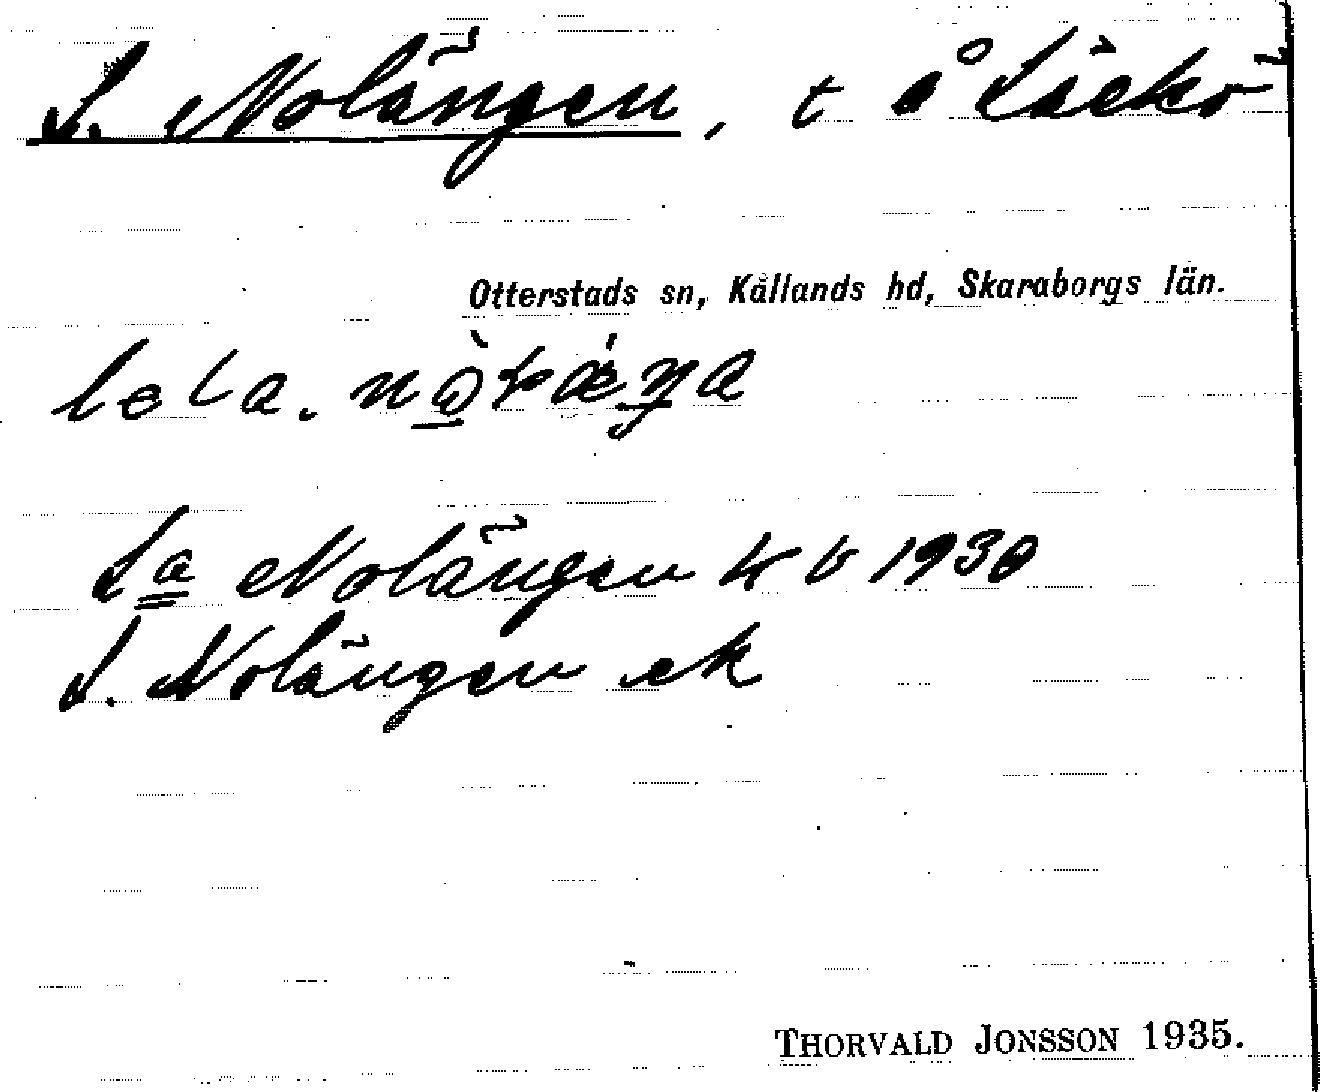 L. Nolängen, t å Läckö
Otterstads sn, Kållands hd, Skaraborgs län.
La Nolängen 1930
L. Nolängen ek
THORVALD JONSSON 1935.